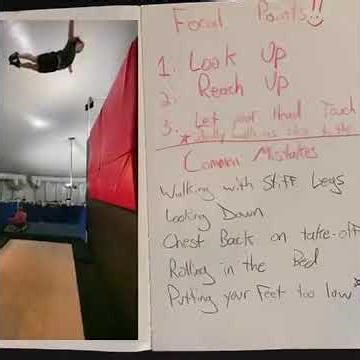 Focal Points!!
1. Look Up
2. Reach Up
3. Let your Head Touch
Common Mistakes
Walking with Stiff Legs
Looking Down
Chest Back on take-off
Rolling in the Bed
Putting your Feet too low